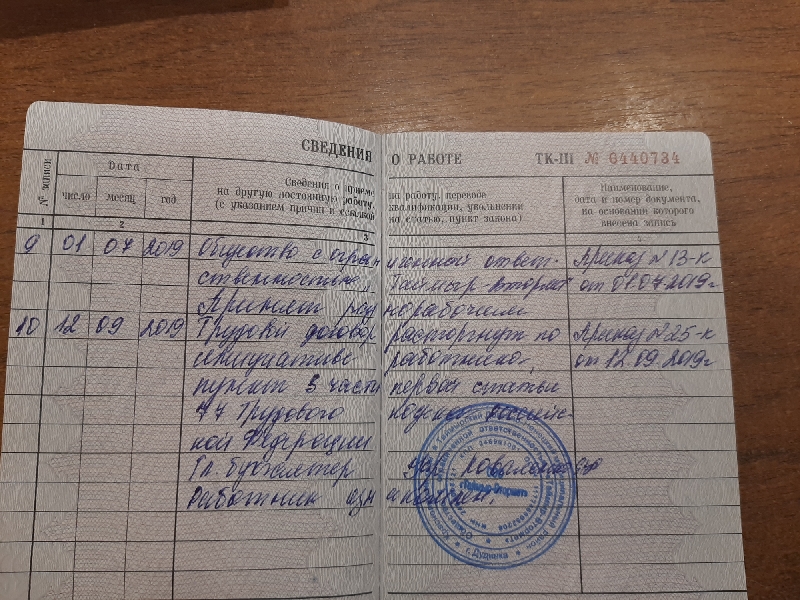 СВЕДЕНИЯ О РАБОТЕ ТК-III № 6440734
№ записи
Дата
число месяц год
Сведения о приеме на работу, переводе
на другую постоянную работу, квалификации, увольнении
(с указанием причин и ссылкой на статью, пункт закона)
Наименование,
дата и номер документа,
на основании которого
внесена запись
1 2 3
9 01 07 2019 Общество с огран иченной ответ- Приказ № 13-к
ственностью „Таймыр-Втормет" от 01.07.2019г
Принят раз норабочим
10 12 09 2019 Трудовой договор расторгнут по Приказ № 25-к
инициативе работника, от 12.09.2019г
пункт 3 части первой статьи
77 Трудового кодекса Российс-
кой Федерации
Гл. бухгалтер
Работник озн акомлен.
г. Дудинка